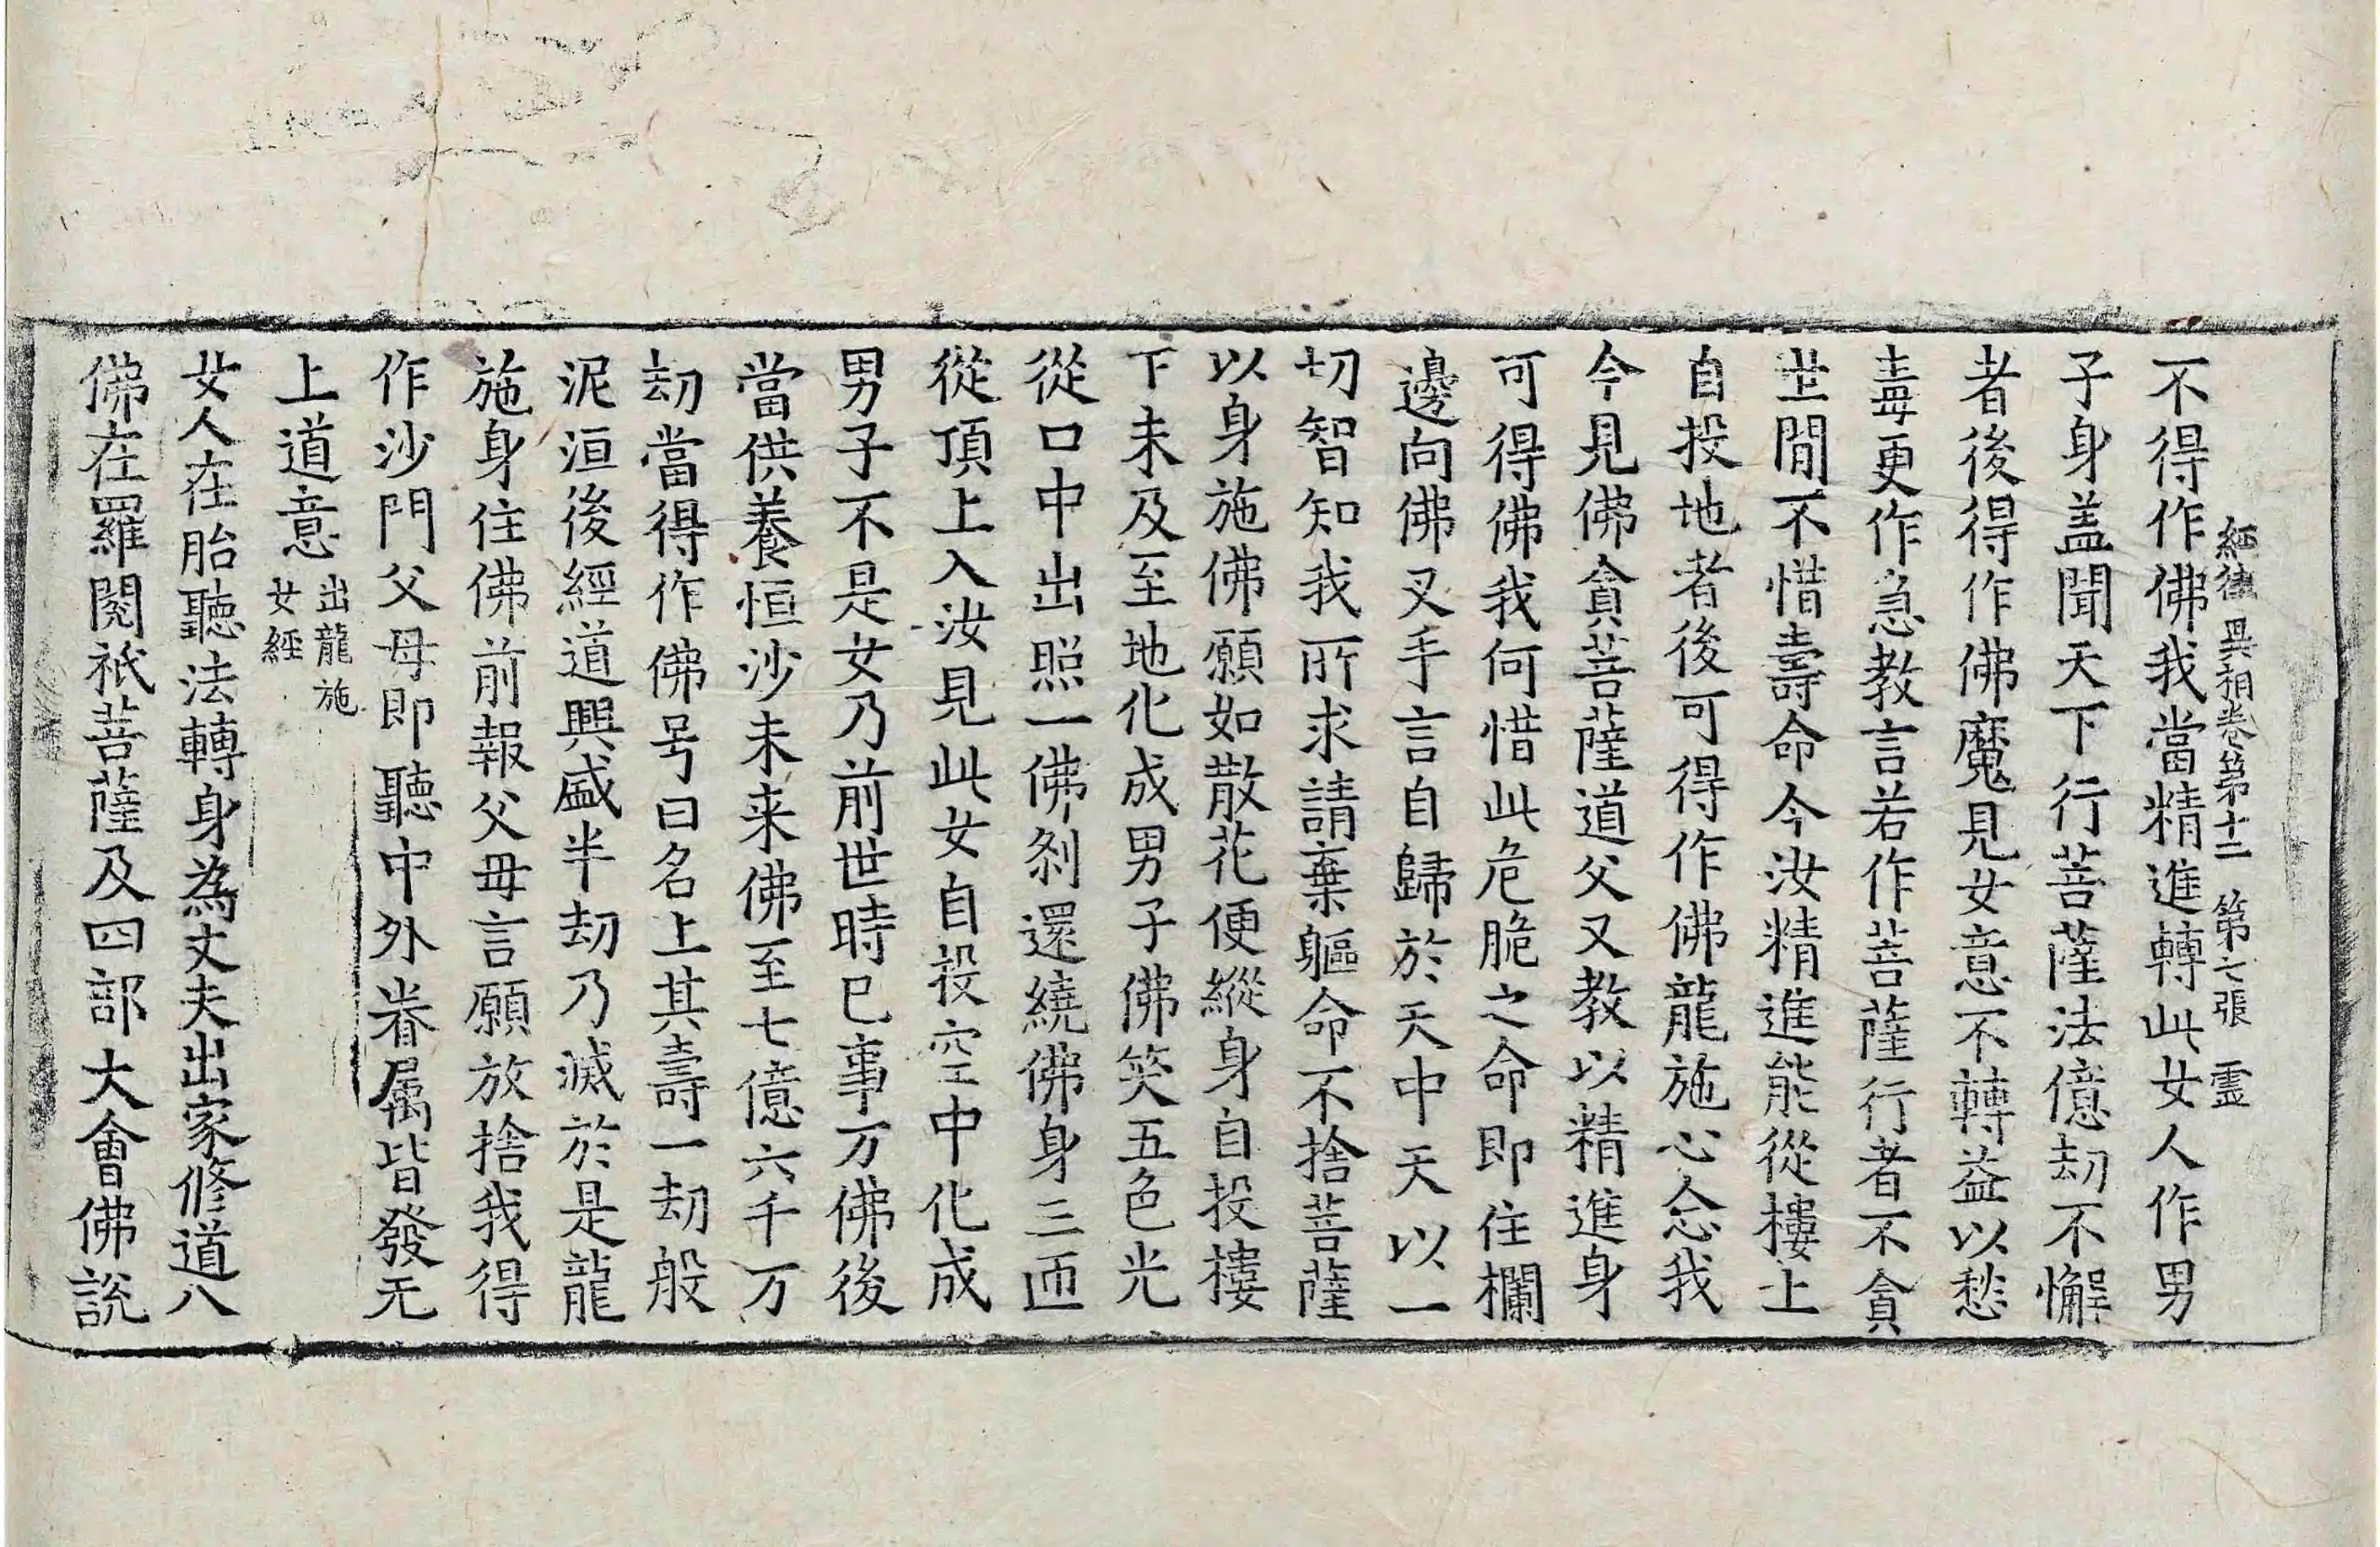 經律異相卷第十二 第七張 霊
不得作佛我當精進轉此女人作男
子身盖聞天下行菩薩法億劫不懈
者後得作佛魔見女意不轉益以愁
毒更作急教言若作菩薩行者不貪
世間不惜壽命今汝精進能從樓上
自投地者後可得作佛龍施心念我
今見佛貪菩薩道父又教以精進身
可得佛我何惜此危脆之命即住欄
邊向佛叉手言自歸於天中天以一
切智知我所求請棄軀命不捨菩薩
以身施佛願如散花便縱身自投樓
下未及至地化成男子佛笑五色光
從口中出照一佛剎還繞佛身三匝
從頂上入汝見此女自投空中化成
男子不是女乃前世時已事万佛後
當供養恒沙未来佛至七億六千万
劫當得作佛号曰名上其壽一劫般
泥洹後經道興盛半劫乃滅於是龍
施身住佛前報父母言願放捨我得
作沙門父母即聽中外眷属皆發无
上道意出龍施女經
女人在胎聽法轉身為丈夫出家修道八
佛在羅閱祇菩薩及四部大會佛說